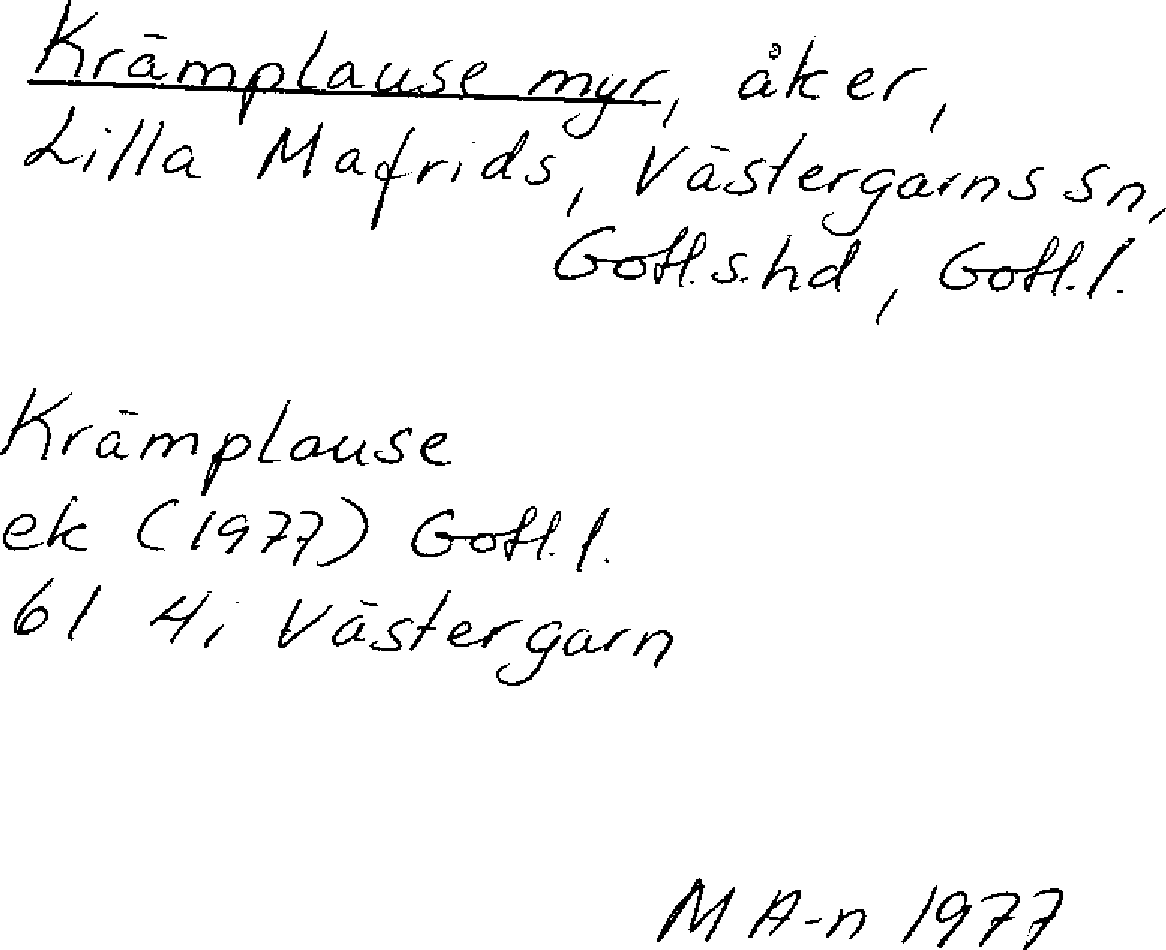 Krämplause myr, åker,
Lilla Mafrids, Västergarns sn,
Gotl.s.hd, Gotl.l.
Krämplause
ek (1977) Gotl.l.
61 4i Västergarn
M A-n 1977